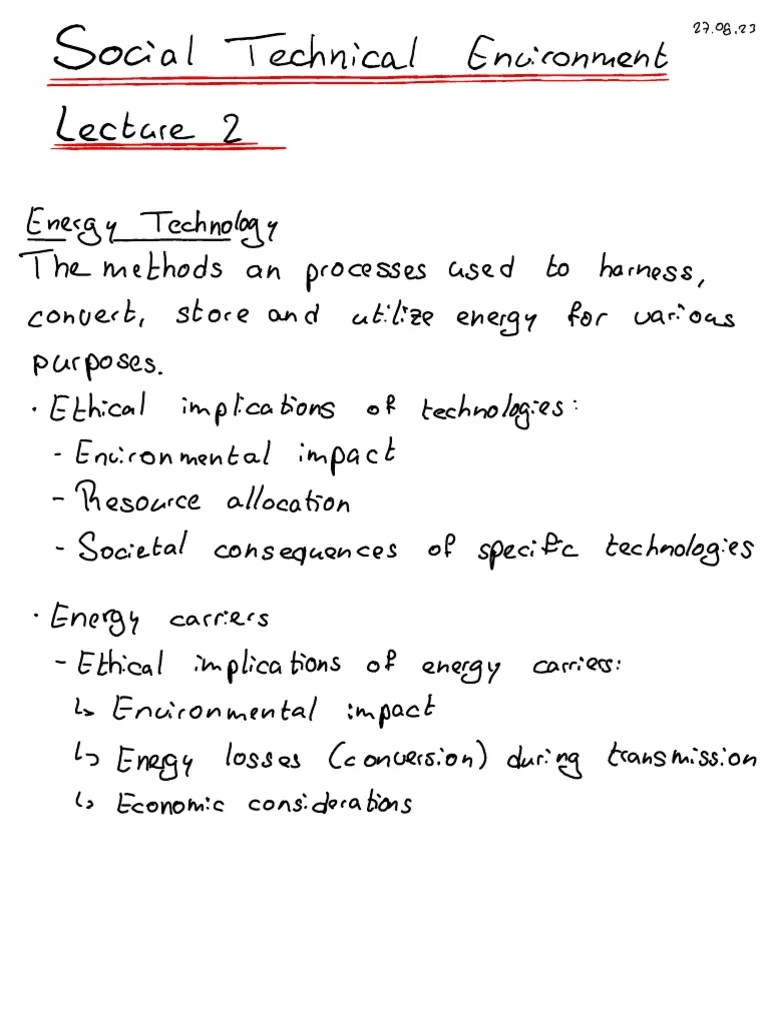 27.08.23
Social Technical Environment
Lecture 2
Energy Technology
The methods an processes used to harness,
convert, store and utilize energy for various
purposes.
· Ethical implications of technologies:
- Environmental impact
- Resource allocation
- Societal consequences of specific technologies
· Energy carriers
- Ethical implications of energy carriers:
↳ Environmental impact
↳ Energy losses (conversion) during transmission
↳ Economic considerations